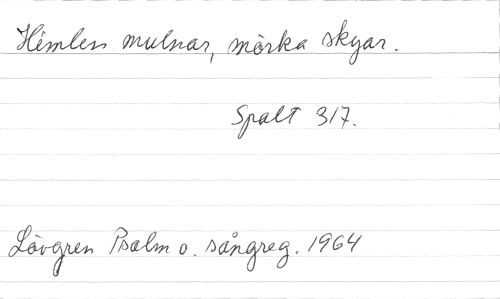 Himlen mulnar, mörka skyar.
Spalt 317.
Lövgren Psalm o. sångreg. 1964